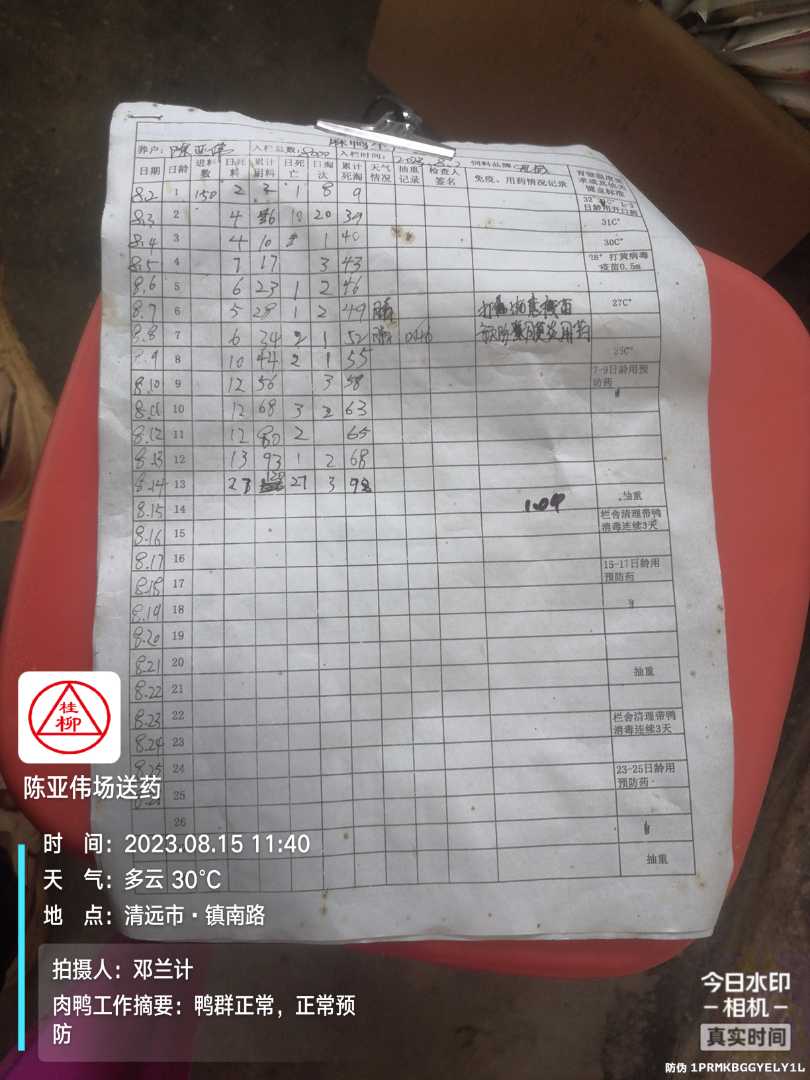 养户：陈亚伟 入栏总数：8000 入栏时间：2023 8.2 饲料品牌：
日期 日龄 进料数 日耗料 累计耗料 日死亡 日淘汰 累计死淘 天气情况 抽重记录 检查人签名 免疫、用药情况记录
8.2 1 150 2 1 8 9 32
8.3 2 4 20 39 31C°
8.4 3 4 10 1 40 30C°
8.5 4 7 17 3 43 28° 打黄病毒疫苗0.5m
8.6 5 6 23 1 2 46
8.7 6 5 28 1 2 49 27C°
8.8 7 6 34 2 1 52
8.9 8 10 44 2 1 55 25C°
8.10 9 12 56 3 58 7-9日龄用预防药
8.11 10 12 68 3 2 63
8.12 11 12 80 2 65
8.13 12 13 93 1 2 68
8.14 13 27 120 27 3 98 抽重
8.15 14 栏舍清理带鸭消毒连续3天
8.16 15
8.17 16 15-17日龄用预防药
8.18 17
8.19 18
8.20 19
8.21 20 抽重
8.22 21
8.23 22 栏舍清理带鸭消毒连续3天
8.24 23
8.25 24 23-25日龄用预防药
25
26
抽重
桂柳
陈亚伟场送药
时 间：2023.08.15 11:40
天 气：多云 30℃
地 点：清远市·镇南路
拍摄人：邓兰计
肉鸭工作摘要：鸭群正常，正常预
防
今日水印
相机
真实时间
防伪 1PRMKBGGYELY1L